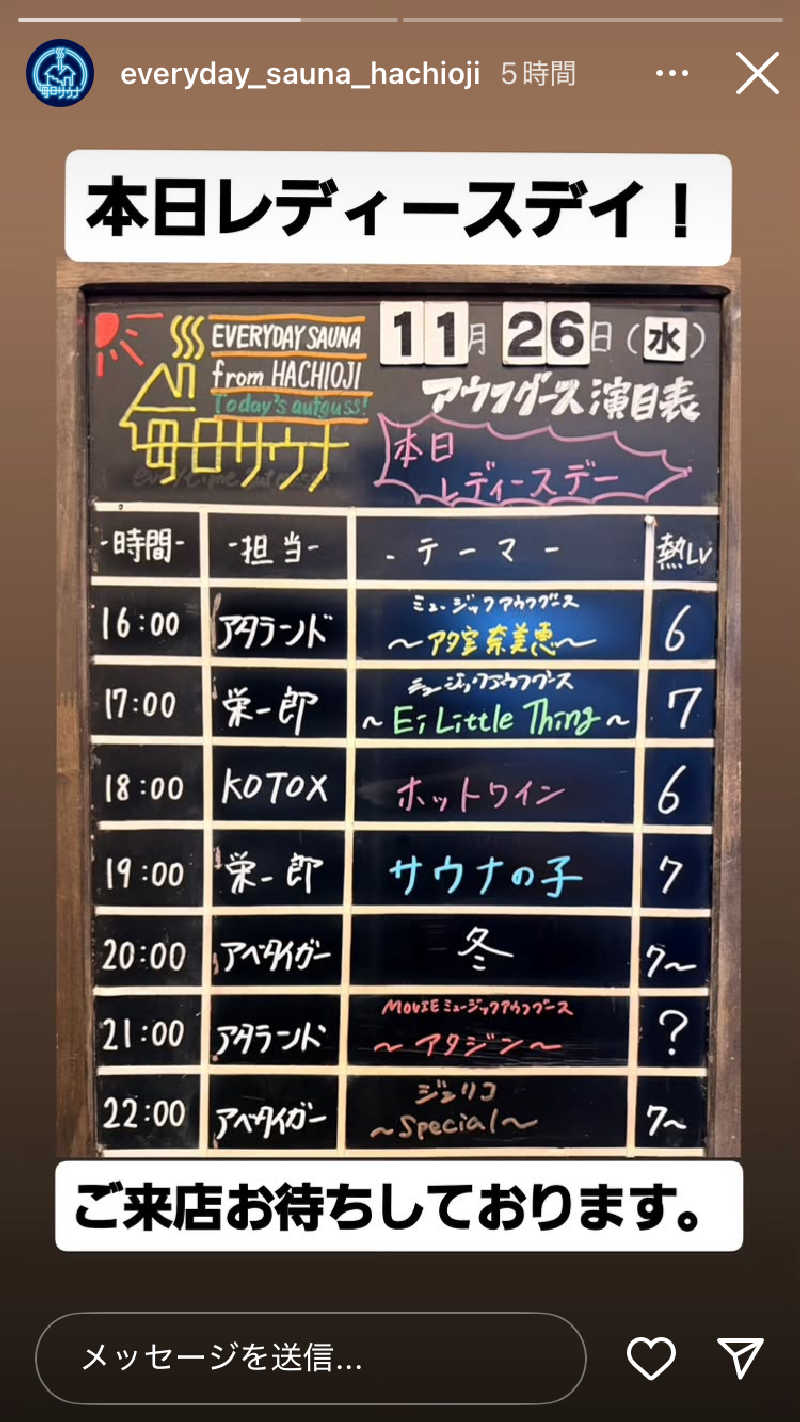 everyday_sauna_hachioji 5時間
本日レディースデイ！
EVERYDAY SAUNA
from HACHIOJI
Today's aufguss!
毎日サウナ
11月26日(水)
アウフグース演目表
本日
レディースデー
-時間- -担当- -テーマ- 熱LV
16:00 アタランド ミュージックアウフグース ～アタ室奈美恵～ 6
17:00 栄一郎 ミュージックアウフグース ～Ei Little Thing～ 7
18:00 KOTOX ホットワイン 6
19:00 栄一郎 サウナの子 7
20:00 アベタイガー 冬 7～
21:00 アタランド MOVIEミュージックアウフグース ～アタジン～ ?
22:00 アベタイガー ジェリコ ～Special～ 7～
ご来店お待ちしております。
メッセージを送信...